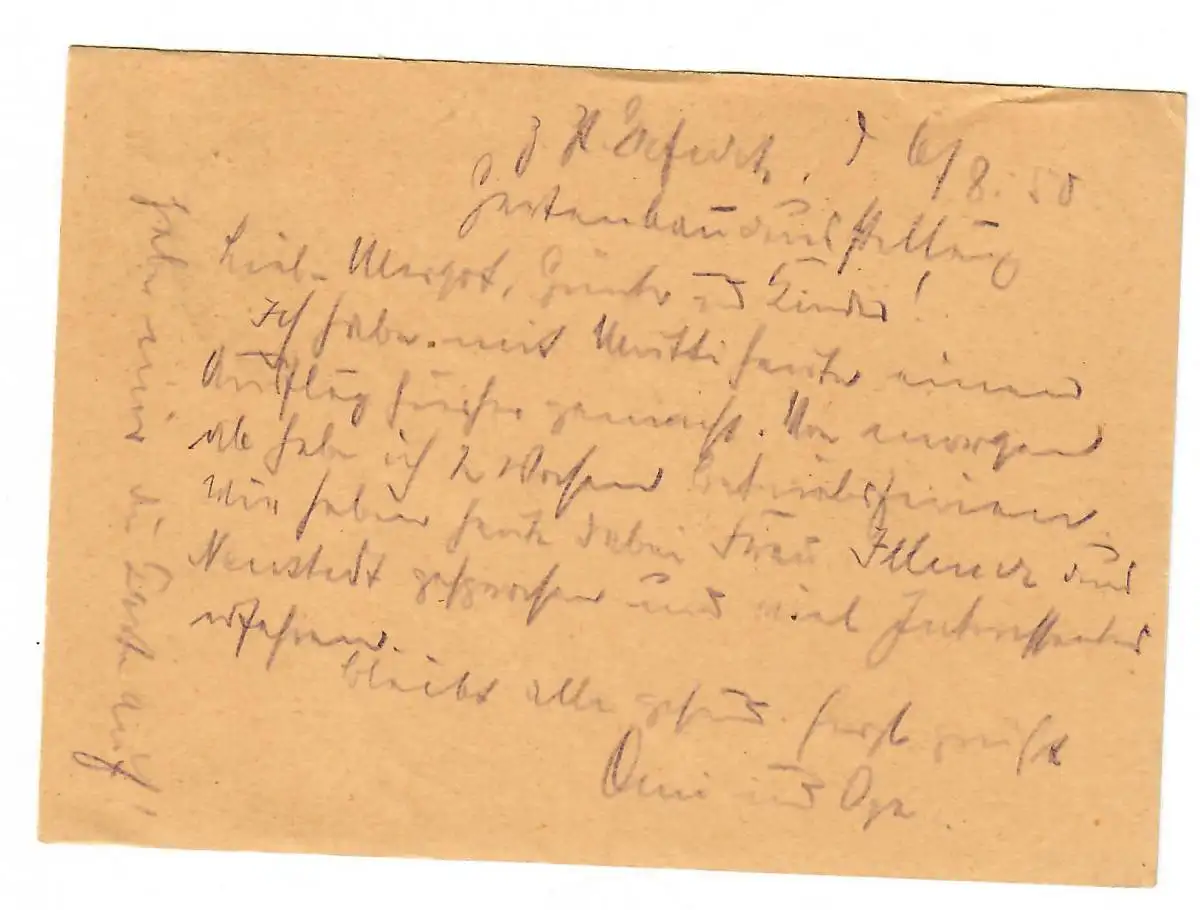 z. Zt. Erfurt, d 6/8. 50
Gartenbauausstellung
Liebe Margot, Günter und Kinder!
Ich habe mit Mutti heute einen
Ausflug hierher gemacht. Von morgen
ab habe ich 2 Wochen Betriebsferien.
Wir haben heute dabei Frau aus
Neustedt gesprochen und viel Interessantes
erfahren.
bleibt alle gesund herzl. grüßt
Omi und Opa.
Hebe mir die Karte auf!